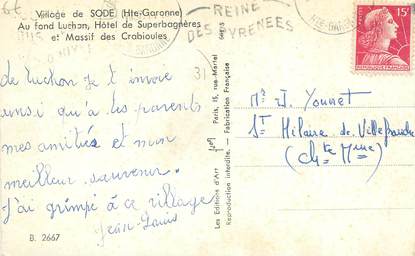 Village de SODE (Hte-Garonne)
Au fond Luchon, Hôtel de Superbagnères
et Massif des Crabioules
REINE
DES PYRENEES
15F
de luchon je t'envoie
ainsi qu'à tes parents
mes amitiés et mon
meilleur souvenir.
J'ai grimpé à ce village
Jean-Louis
B. 2667
31
Les Editions d'Art
Paris, 15, rue Martel
Reproduction interdite. - Fabrication Française
Mr J. Younet
St Hilaire de Villefranche
(Chte Mme)